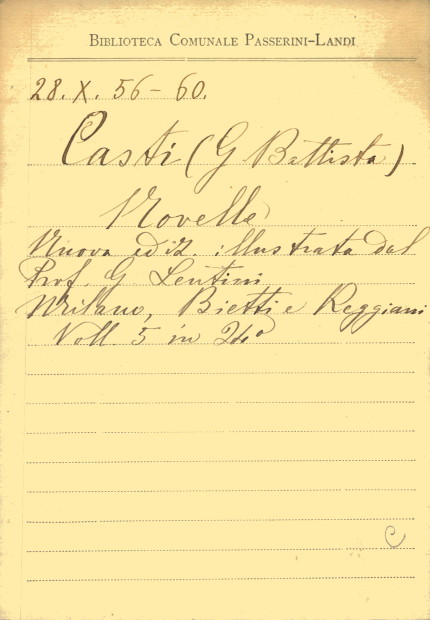 BIBLIOTECA COMUNALE PASSERINI-LANDI
28. X. 56-60.
Casti (G Battista)
Novelle
Nuova ediz. illustrata dal
Prof. G Lentini
Milano, Bietti e Reggiani
Voll. 5 in 24°
C